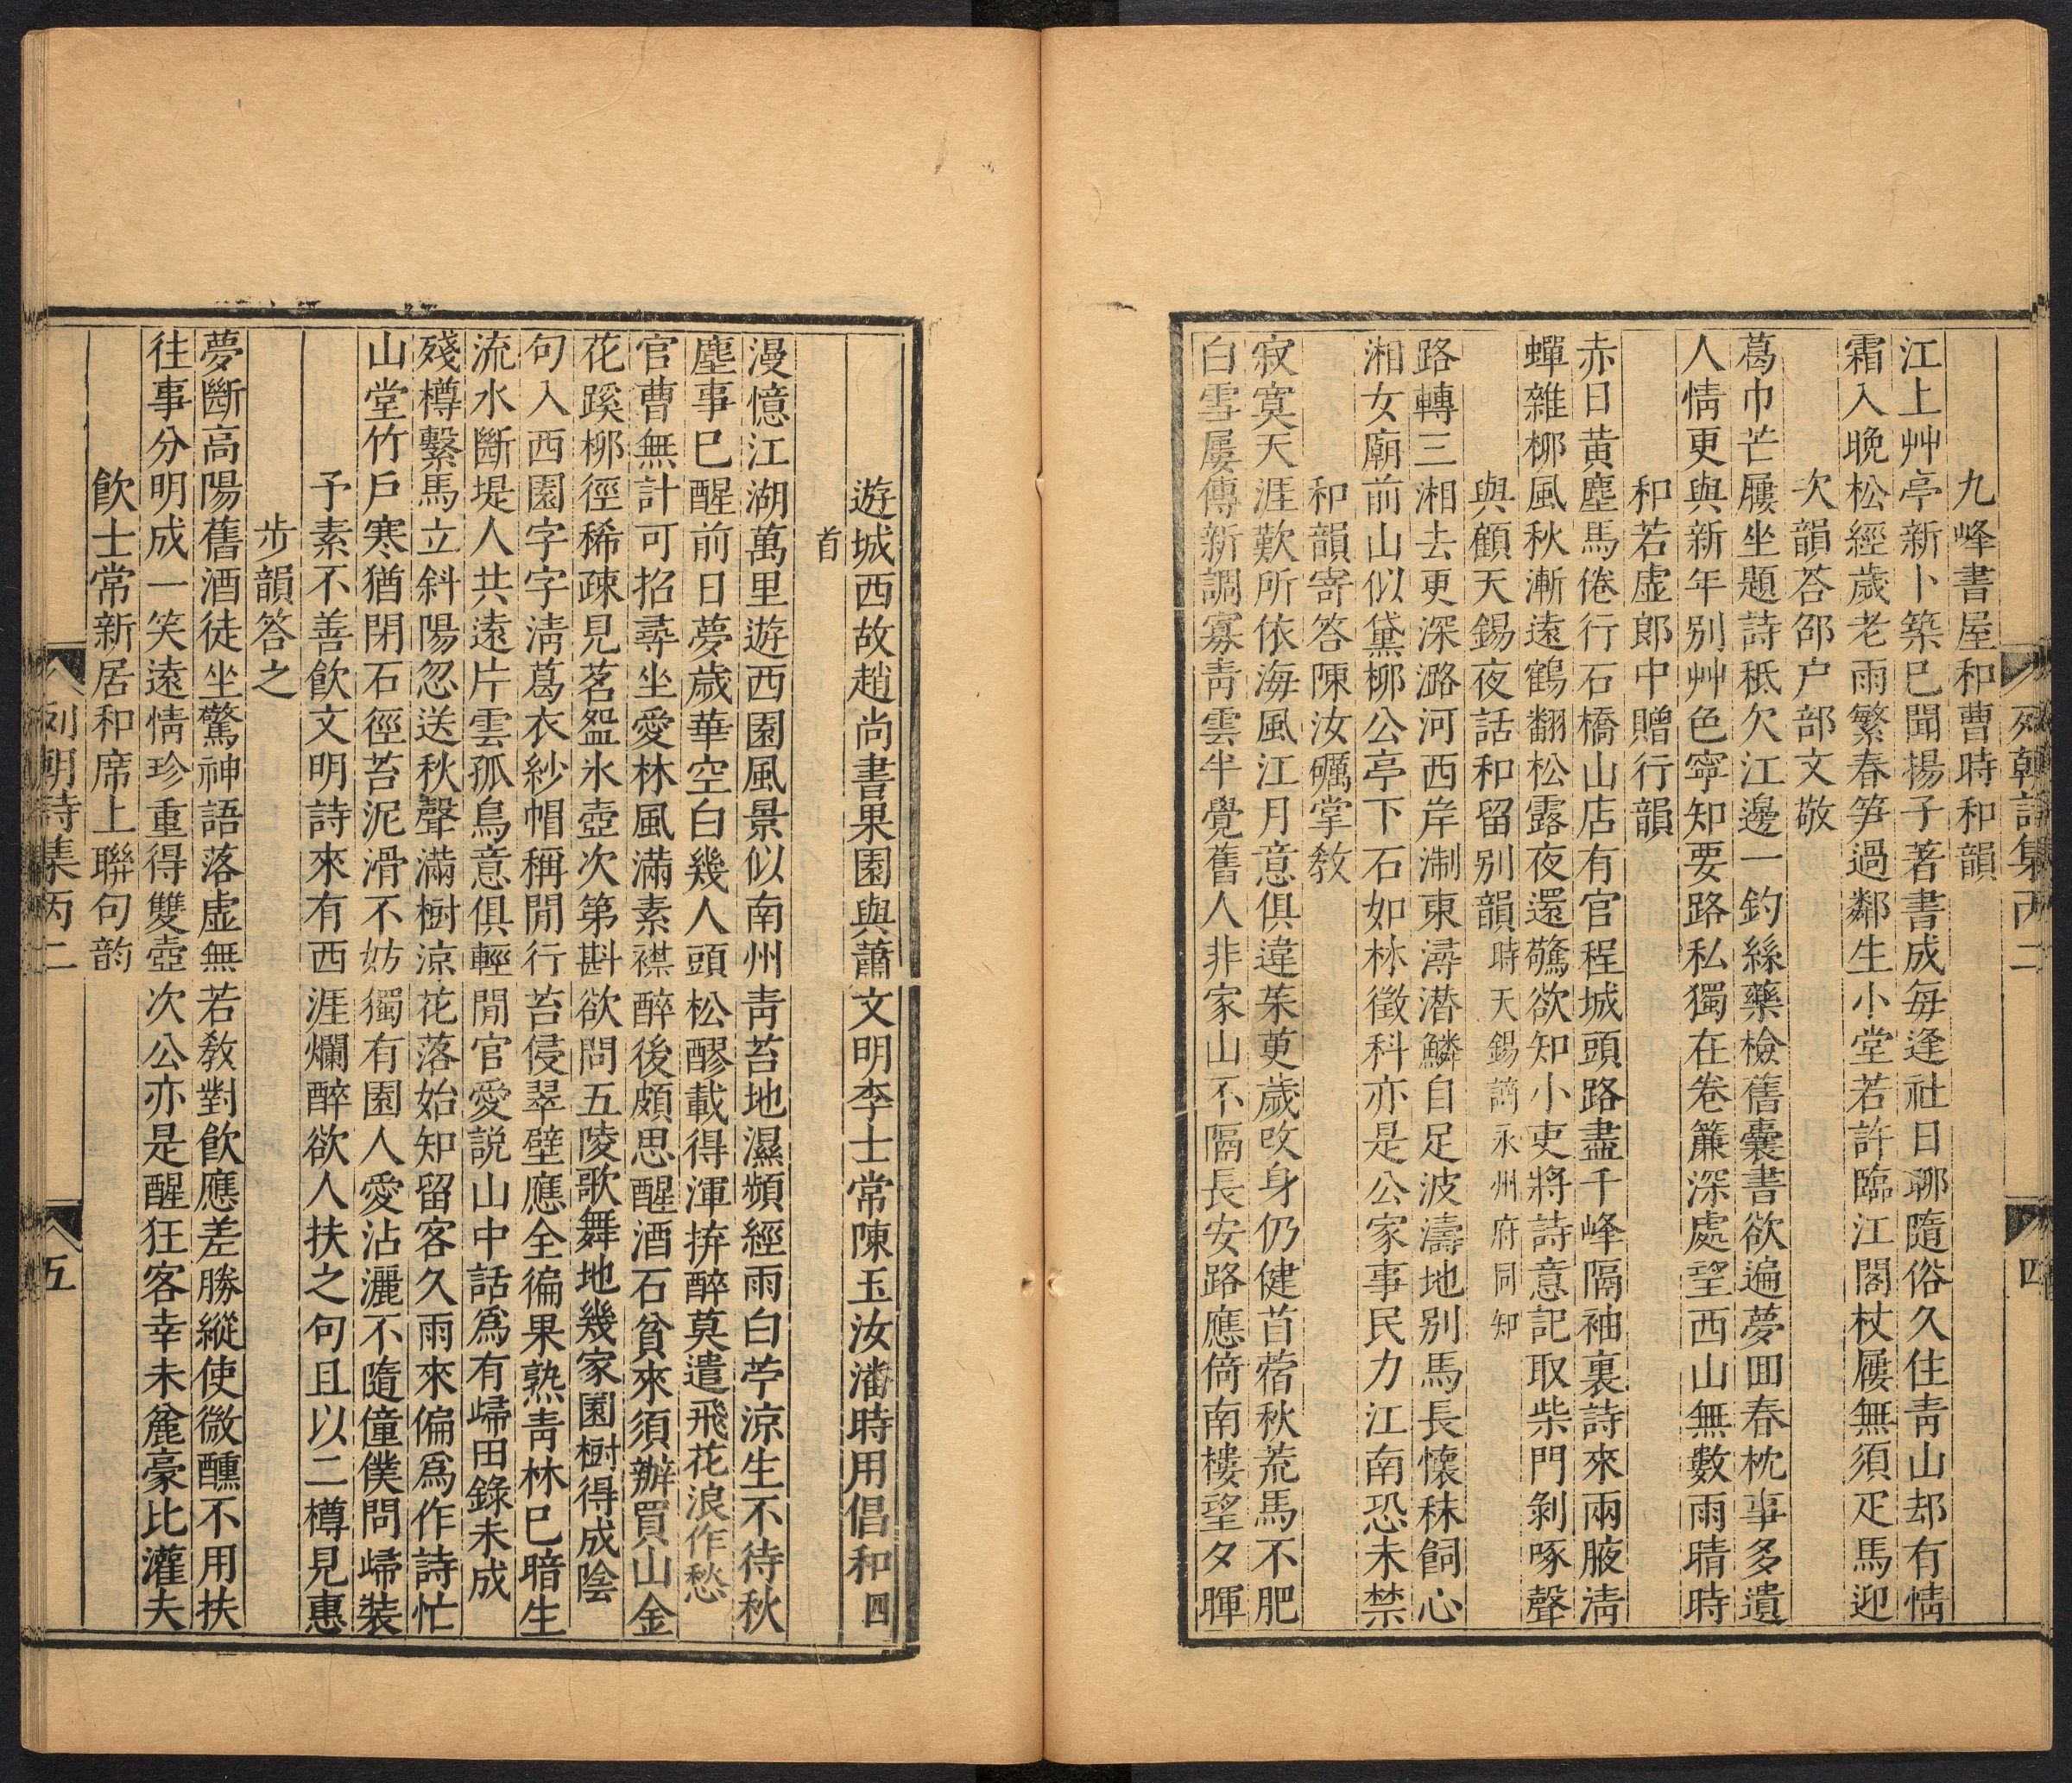 九峰書屋和曹時和韻
江上艸亭新卜築巳聞揚子著書成每逢社日聊隨俗久住青山却有情
霜入晚松經歲老雨繁春笋過鄰生小堂若許臨江閣杖屨無須疋馬迎
次韻荅邵户部文敬
葛巾芒屨坐題詩秪欠江邊一釣絲藥檢舊囊書欲遍夢回春枕事多遺
人情更與新年别艸色寧知要路私獨在卷簾深處望西山無數雨晴時
和若虚郎中贈行韻
赤日黄塵馬倦行石橋山店有官程城頭路盡千峰隔袖裏詩來兩腋清
蟬雜柳風秋漸遠鶴翻松露夜還驚欲知小吏將詩意記取柴門剝啄聲
與顧天錫夜話和留别韻時天錫謫永州府同知
路轉三湘去更深潞河西岸淛東潯潜鱗自足波濤地别馬長懷秣飼心
湘女廟前山似黛柳公亭下石如林徵科亦是公家事民力江南恐未禁
和韻寄答陳汝礪掌教
寂寞天涯歎所依海風江月意俱違茱萸歲改身仍健苜蓿秋荒馬不肥
白雪屢傳新調寡青雲半覺舊人非家山不隔長安路應倚南樓望夕暉
列朝詩集丙二
四
遊城西故趙尚書果園與蕭文明李士常陳玉汝潘時用倡和四
首
漫憶江湖萬里遊西園風景似南州青苔地濕頻經雨白苧涼生不待秋
塵事巳醒前日夢歲華空白幾人頭松醪載得渾拚醉莫遣飛花浪作愁
官曹無計可招尋坐愛林風滿素襟醉後頗思醒酒石貧來須辦買山金
花蹊柳徑稀疎見茗盌氷壺次第斟欲問五陵歌舞地幾家園樹得成陰
句入西園字字清葛衣紗帽稱閒行苔侵翠壁應全徧果熟青林巳暗生
流水斷堤人共遠片雲孤鳥意俱輕閒官愛説山中話爲有歸田錄未成
殘樽繫馬立斜陽忽送秋聲滿樹涼花落始知留客久雨來偏爲作詩忙
山堂竹戶寒猶閉石徑苔泥滑不妨獨有園人愛沾灑不隨僮僕問歸裝
予素不善飲文明詩來有西涯爛醉欲人扶之句且以二樽見惠
步韻答之
夢斷高陽舊酒徒坐驚神語落虚無若教對飲應差勝縱使微醺不用扶
往事分明成一笑遠情珍重得雙壺次公亦是醒狂客幸未麄豪比灌夫
飲士常新居和席上聯句韵
列朝詩集丙二
五